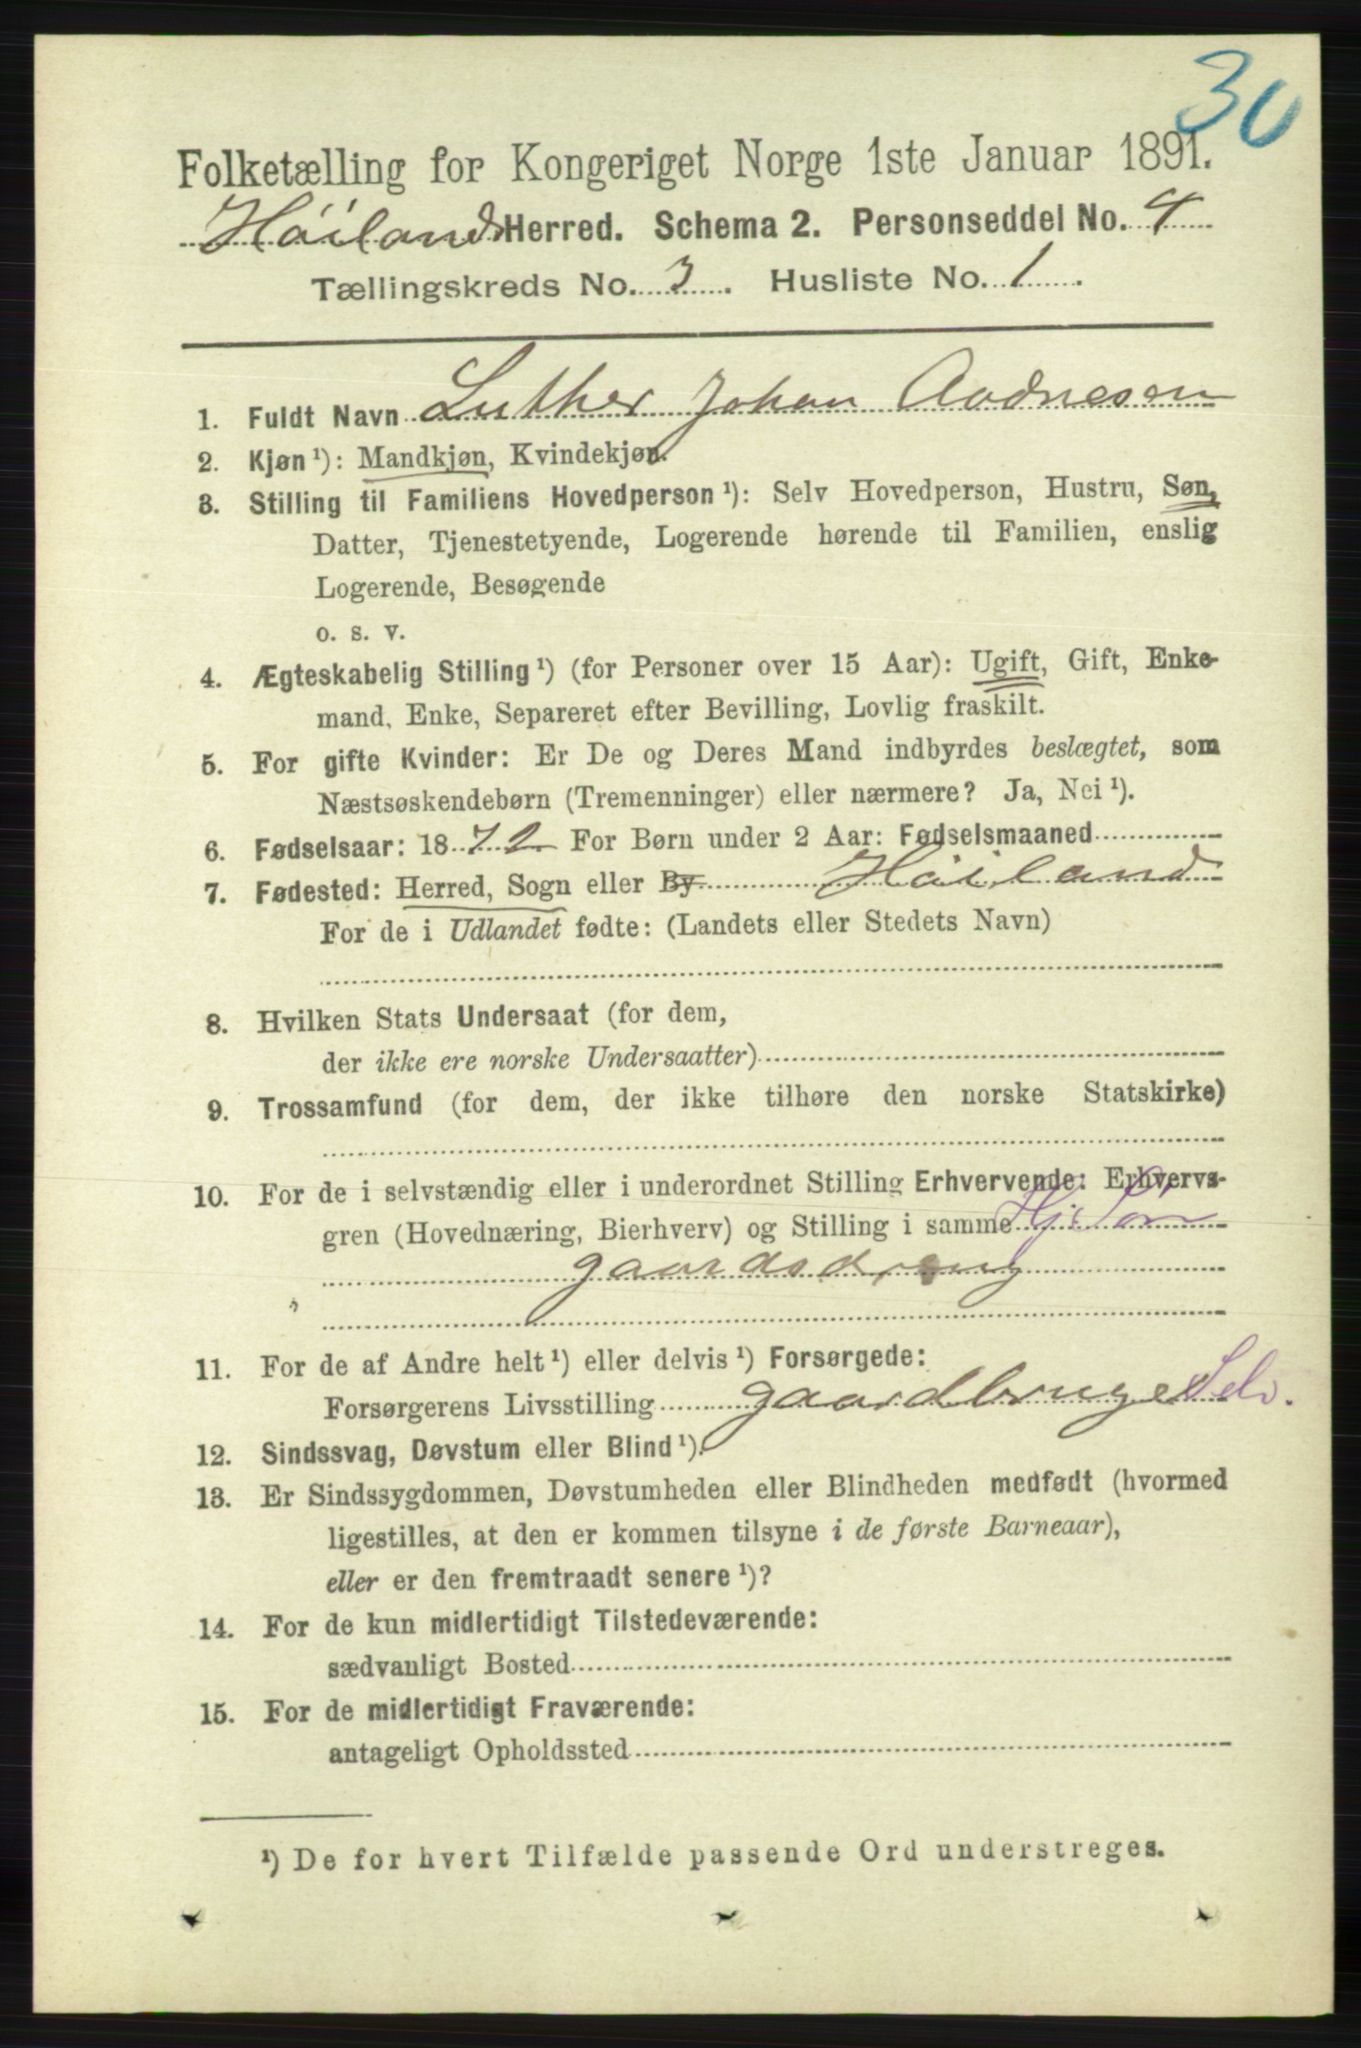 30
Folketælling for Kongeriget Norge 1ste Januar 1891.
Höilands Herred. Schema 2. Personseddel No. 4
Tællingskreds No. 3. Husliste No. 1.
1. Fuldt Navn Luther Johan Aadnesen
2. Kjøn¹): Mandkjøn, Kvindekjøn.
3. Stilling til Familiens Hovedperson¹): Selv Hovedperson, Hustru, Søn,
Datter, Tjenestetyende, Logerende hørende til Familien, enslig
Logerende, Besøgende
o. s. v.
4. Ægteskabelig Stilling¹) (for Personer over 15 Aar): Ugift, Gift, Enke-
mand, Enke, Separeret efter Bevilling, Lovlig fraskilt.
5. For gifte Kvinder: Er De og Deres Mand indbyrdes beslægtet, som
Næstsøskendebørn (Tremenninger) eller nærmere? Ja, Nei¹).
6. Fødselsaar: 1872 For Børn under 2 Aar: Fødselsmaaned
7. Fødested: Herred, Sogn eller By Höiland
For de i Udlandet fødte: (Landets eller Stedets Navn)
8. Hvilken Stats Undersaat (for dem,
der ikke ere norske Undersaatter)
9. Trossamfund (for dem, der ikke tilhøre den norske Statskirke)
10. For de i selvstændig eller i underordnet Stilling Erhvervende: Erhvervs-
gren (Hovednæring, Bierhverv) og Stilling i samme Hj. Søn
gaardsdreng
11. For de af Andre helt¹) eller delvis¹) Forsørgede:
Forsørgerens Livsstilling gaardbruger Selv.
12. Sindssvag, Døvstum eller Blind¹).
13. Er Sindssygdommen, Døvstumheden eller Blindheden medfødt (hvormed
ligestilles, at den er kommen tilsyne i de første Barneaar),
eller er den fremtraadt senere¹)?
14. For de kun midlertidigt Tilstedeværende:
sædvanligt Bosted
15. For de midlertidigt Fraværende:
antageligt Opholdssted
¹) De for hvert Tilfælde passende Ord understreges.